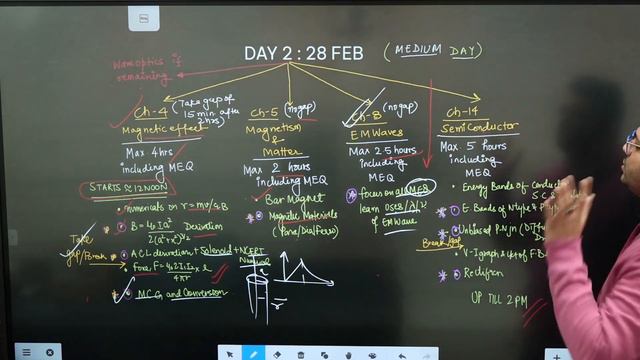 DAY 2 : 28 FEB
( MEDIUM DAY )
Wave optics if
remaining
Ch-4 (Take gap of
15 min after
2hrs)
Magnetic effect
Max 4hrs
including MEQ
STARTS 12 NOON
Numericals on r = mv/qB
B = Derivation
Take
gap/Break
ACL derivation + Solenoid + NCERT
Force F =
MCG and Conversion
Ch-5 (no gap)
Magnetism
&
Matter
Max 2 hours
including MEQ
Bar Magnet
Magnetic Materials
(Para/Dia/Ferro)
Ch-8 (no gap)
EM Waves
Max 2.5 hours
including MEQ
focus on all MCQ
learn USES / λ / ν
of EM Wave
Ch-14
Semiconductor
Max. 5 hours
including
MEQ
Energy Bands of
E. Bands of N type &
Unbiased P-N jn
Break/gap
V-I graph
Rectifier
UP TILL 2 PM